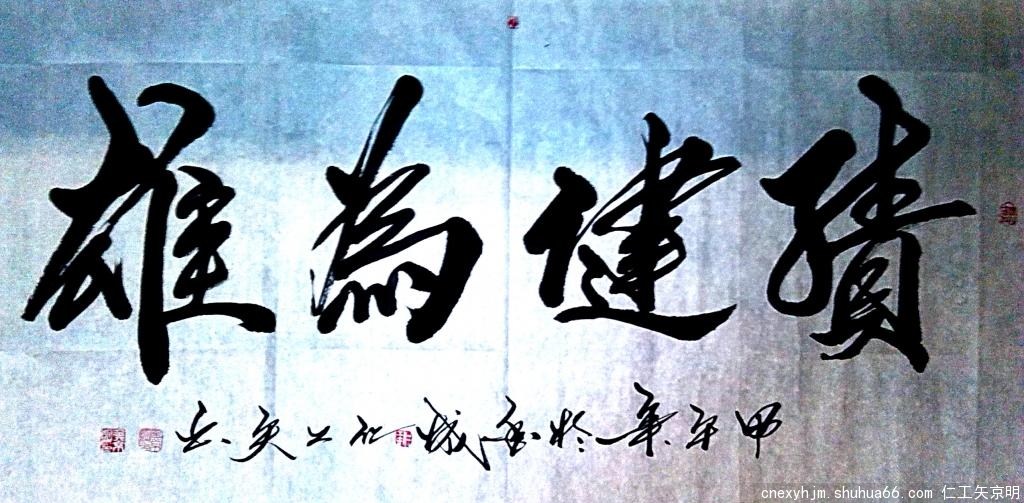 積健為雄
甲午年於城仁工矢
cnexyhjm.shuhua66.com 仁工矢京明